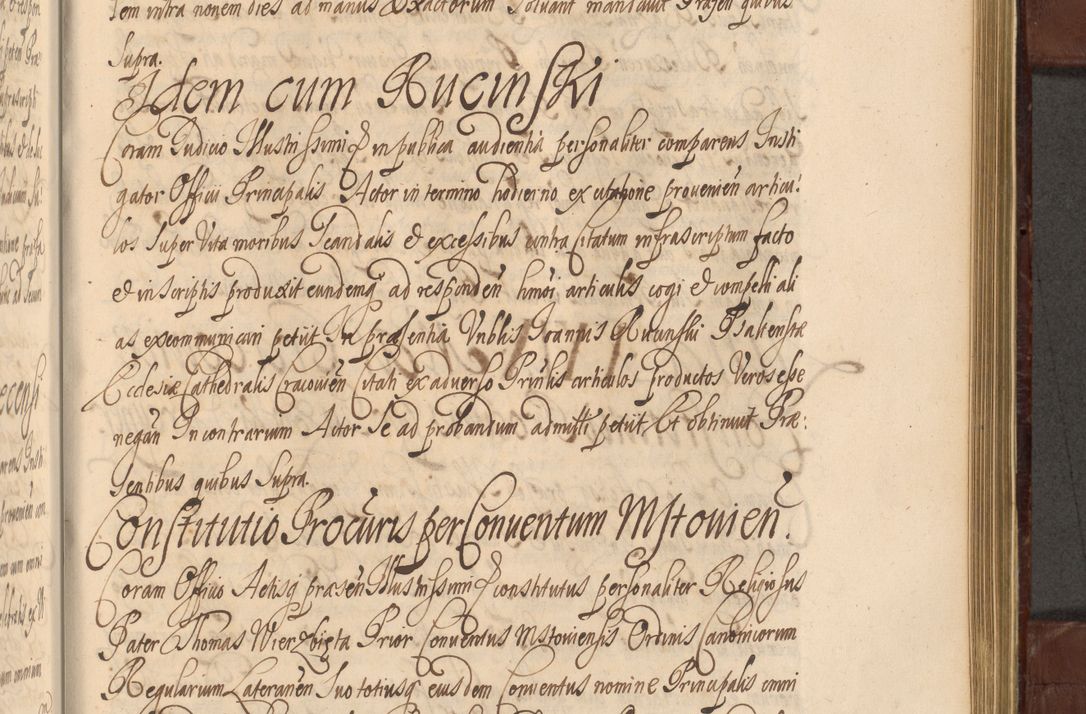 Iem intra nonem dies ad manus Exactorum Solvant mandavit Præsen quibus
Supra.
Idem cum Rucinski
Coram Judicio Illustrissimi D in publica audientia personaliter comparens Insti
gator Officii Principalis Actor in termino hodierno ex citatione provenien articu:
los Super Vita moribus Scandalis et excessibus contra Citatum infrascriptum facto
et in Scriptis produxit eundemq ad responden hmoi articulis cogi et compelli ali
as excommunicari petiit In præsentia Vnblis Joannis Rucinski Psaltenstæ
Ecclesiæ Cathedralis Cracovien Citati ex adverso Prinlis articulos productos Veros esse
negan In contrarium Actor Se ad probandum admitti petiit, Et obtinuit Præ:
sentibus quibus Supra.
Constitutio Procuris per Conventum Mstovien.
Coram Officio Actisq præsen Illustrissimi D constitutus personaliter Religiosus
Pater Thomas Wierzbięta Prior Conventus Mstoviensis Ordinis Canonicorum
Regularium Lateranen Suo totiusq eiusdem Conventus nomine Principalis omni